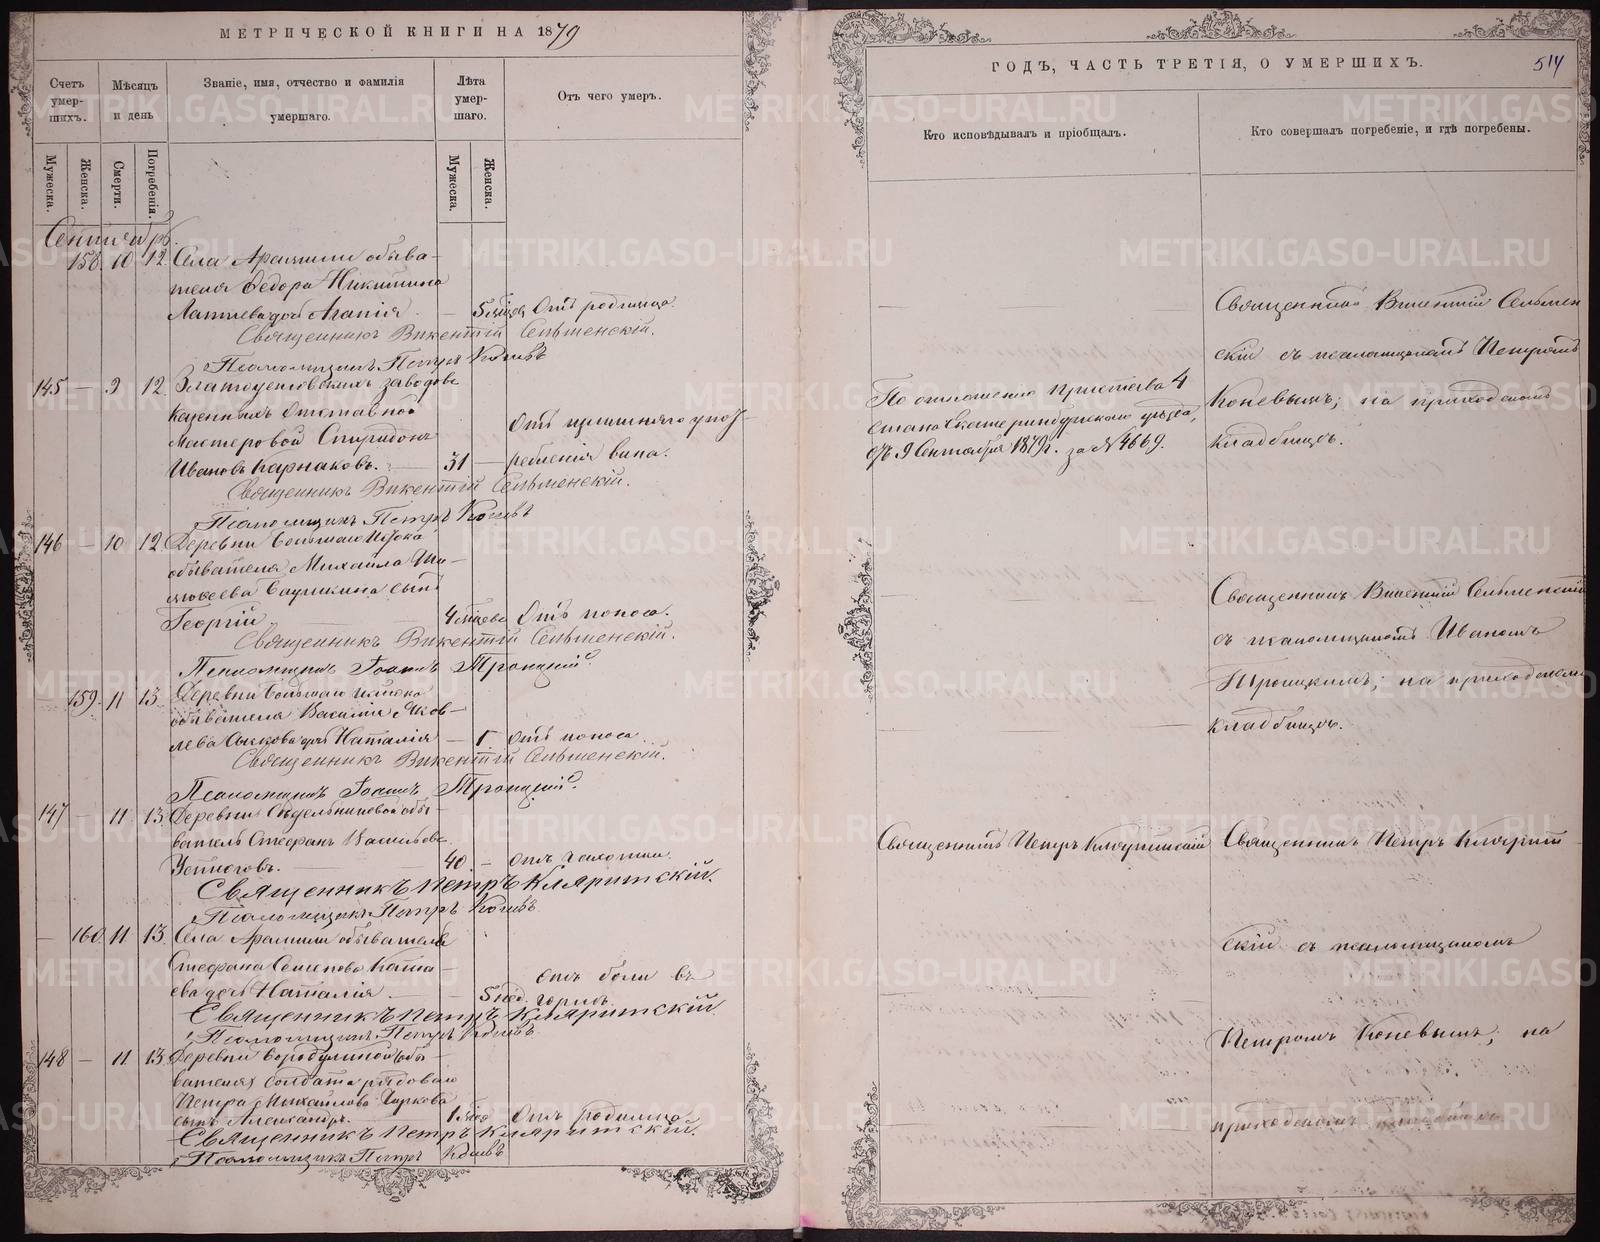 МЕТРИЧЕСКОЙ КНИГИ НА 1879
Счетъ умер-шихъ.
Мѣсяцъ и день
Званіе, имя, отчество и фамилія умершаго.
Лѣта умер-шаго.
Отъ чего умеръ.
Мужеска.
Женска.
Смерти.
Погребенія.
Мужеска.
Женска.
Сентябрь.
158. 10 12 Села Арамили обыва-
теля Ѳедора Никитина
Лаптева дочь Агапія — 5 мѣсяц. Отъ родимца.
Священникъ Викентій Сельменскій.
Псаломщикъ Петръ Коневъ
145 — 9 12 Златоустовскихъ заводовъ
казенныхъ отставной
мастеровой Спиридонъ
Отъ излишняго упот-
Ивановъ Карнаковъ. — 31 — ребленія вина.
Священникъ Викентій Сельменскій.
Псаломщикъ Петръ Коневъ
146 — 10 12 Деревни Большаго Истока
обывателя Михаила Ти-
моѳеева сынъ
Георгій 4 мѣсяцевъ Отъ поноса.
Священникъ Викентій Сельменскій.
Псаломщикъ Іоаннъ Троицкій.
— 159. 11 13 Деревни Большаго Истока
обывателя Василія Яков-
лева дочь Наталія — 1 Отъ поноса.
Священникъ Викентій Сельменскій.
Псаломщикъ Іоаннъ Троицкій.
147 — 11 13. Деревни Сѣдельниковой обы-
ватель Стефанъ Васильевъ
40 — отъ чахотки.
Священникъ Петръ Кляритскій.
Псаломщикъ Петръ Коневъ
— 160. 11 13. Села Арамили обывателя
Стефана Семенова
дочь Наталія — 5 нед. отъ боли въ горлѣ.
Священникъ Петръ Кляритскій.
Псаломщикъ Петръ Коневъ
148 — 11 13 Деревни Бородулиной (обы-
вателя) солдата рядоваго
Петра Михайлова
сынъ Александръ. 1 мѣс. Отъ родимца
Священникъ Петръ Кляритскій.
Псаломщикъ Петръ Коневъ
ГОДЪ, ЧАСТЬ ТРЕТІЯ, О УМЕРШИХЪ.
514
Кто исповѣдывалъ и пріобщалъ.
Кто совершалъ погребеніе, и гдѣ погребены.
Священникъ Викентій Сельмен
скій съ псаломщикомъ Петромъ
Коневымъ; на приходскомъ
кладбищѣ.
По отношенію пристава 4
стана Екатеринбургскаго уѣзда,
отъ 9 Сентября 1879г. за № 4669.
Священникъ Викентій Сельменскій
съ псаломщикомъ Иваномъ
Троицкимъ; на приходскомъ
кладбищѣ.
Священникъ Петръ Кляритскій
Священникъ Петръ Клярит
скій съ псаломщикомъ
Петромъ Коневымъ; на
приходскомъ кладбищѣ
METRIKI.GASO-URAL.RU